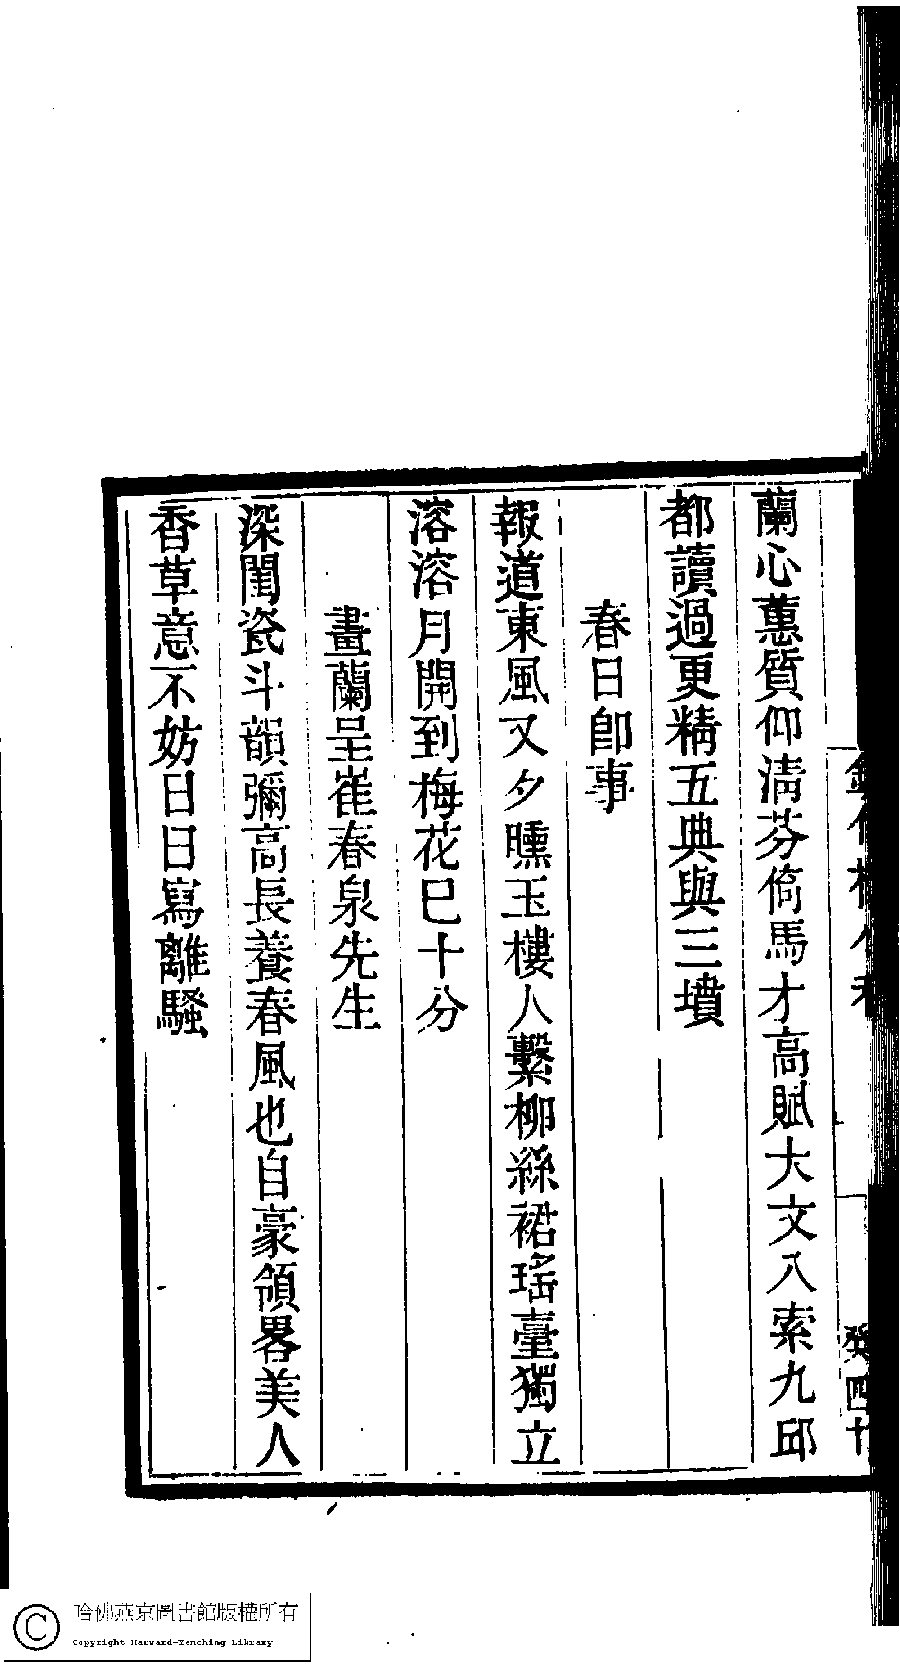 蘭心蕙質仰清芬倚馬才高賦大文八索九邱
都讀過更精五典與三墳
春日卽事
報道東風又夕曛玉樓人繫柳絲裙瑤臺獨立
溶溶月開到梅花巳十分
畫蘭呈崔春泉先生
深閨瓷斗韻彌高長養春風也自豪領畧美人
香草意不妨日日寫離騷
哈佛燕京圖書館版權所有
Copyright Harvard-Yenching Library